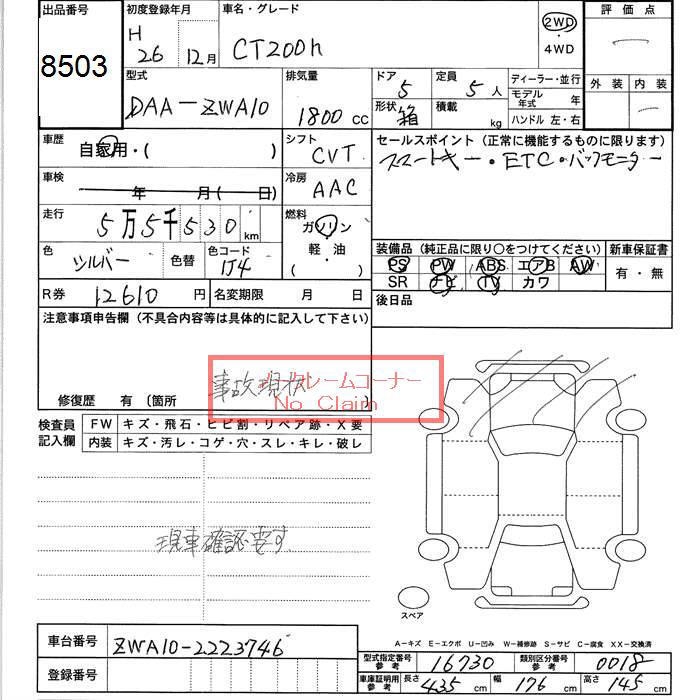 出品番号 初度登録年月 車名・グレード 2WD・4WD 評価点
8503 H 26 12月 CT200h
外装 内装
型式 排気量 ドア 定員 ディーラー・並行
DAA-ZWA10 1800 cc 5 5人 モデル年式 年
形状 箱 積載 kg ハンドル 左・右
車歴 シフト セールスポイント(正常に機能するものに限ります)
自家用・( ) CVT スマートキー・ETC・バックモニター
車検 年 月( 日) 冷房 AAC
走行 5万5千530km 燃料 ガソリン 軽・油 ( )
色 シルバー 色替 色コード 1J4
装備品(純正品に限り○をつけてください) 新車保証書
PS PW ABS エアB AW 有・無
SR ナビ TV カワ
R券 12610円 名変期限 月 日 後日品
注意事項申告欄(不具合内容等は具体的に記入して下さい)
事故現状
ノークレームコーナー
No Claim
修復歴 有 〔箇所 〕
検査員記入欄 FW キズ・飛石・ヒビ割・リペア跡・X要
内装 キズ・汚レ・コゲ・穴・スレ・キレ・破レ
現車確認要す
スペア
A-キズ E-エクボ U-凹み W-補修跡 S-サビ C-腐食 XX-交換済
車台番号 ZWA10-2223746
登録番号
型式指定番号 参考 16730 類別区分番号 参考 0018
車庫証明用 参考 長さ 435cm 幅 176cm 高さ 145cm